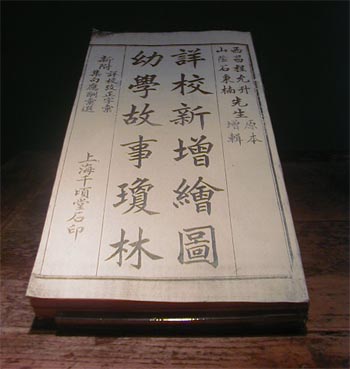 西昌程允升
山陰石東楠
先生
原本
增輯
詳校新增繪圖
幼學故事瓊林
新附
正字彙
集句應酬彙選
上海千頃堂石印